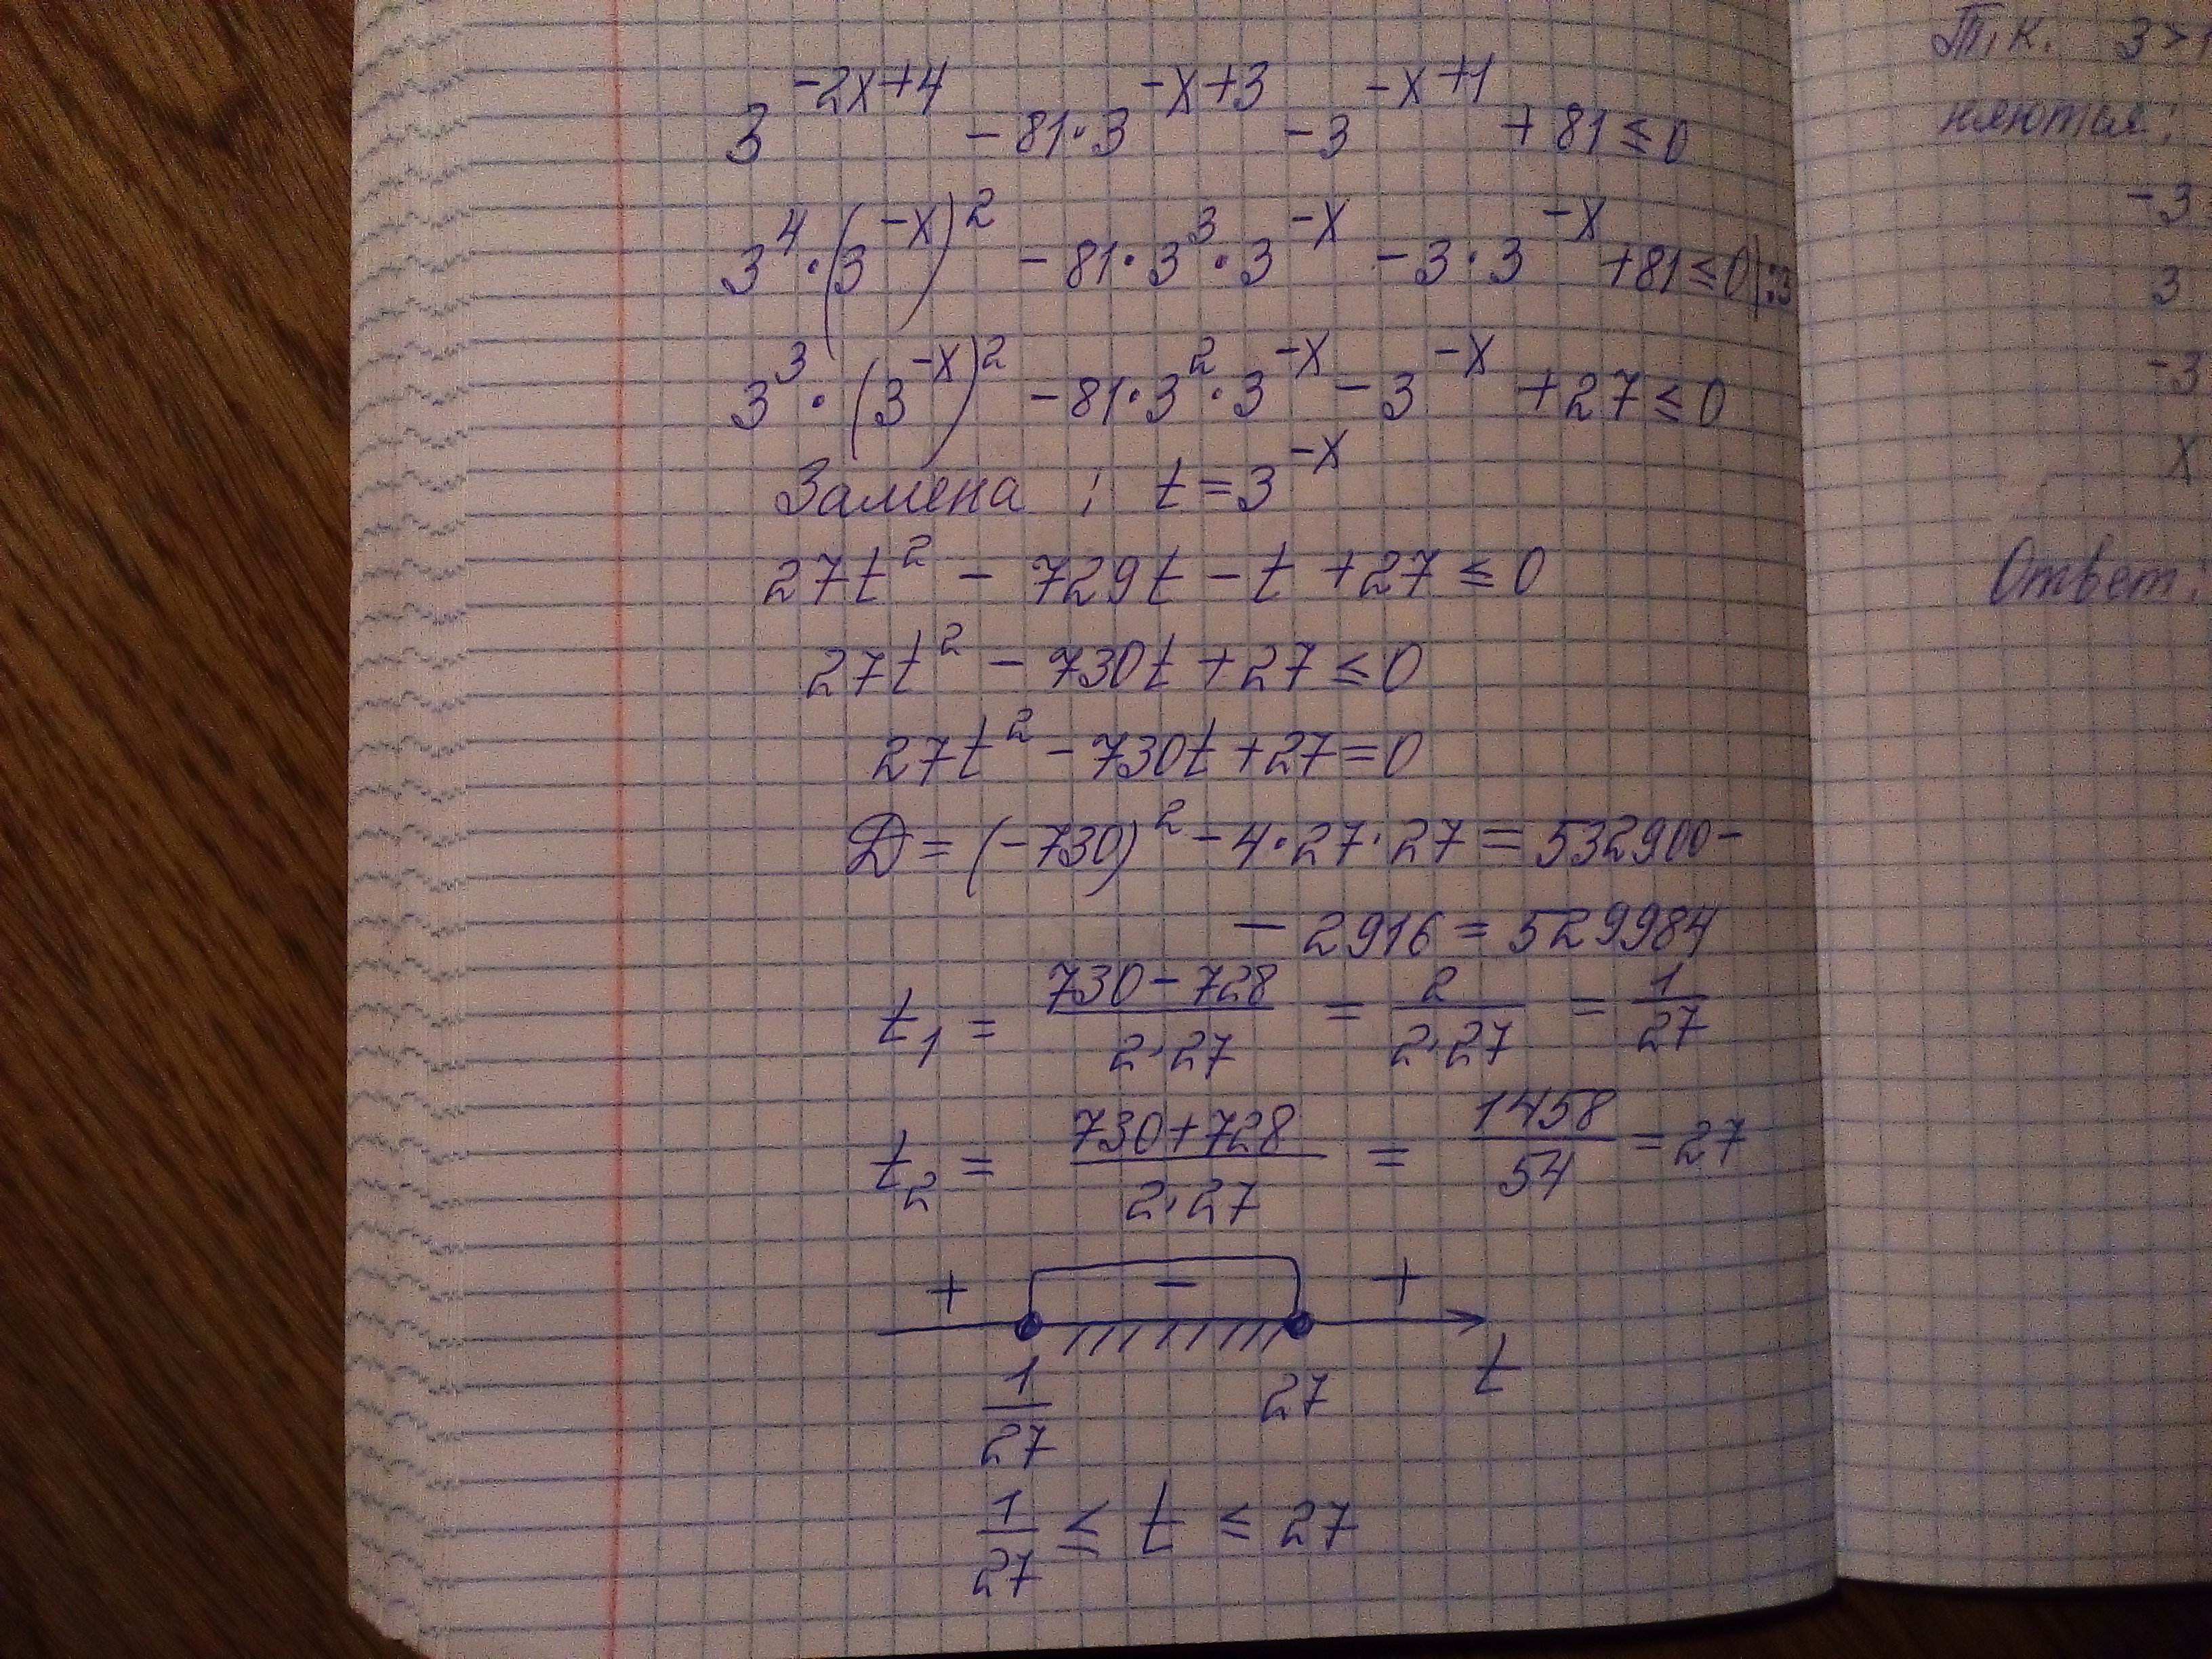 3^(-2x+4) - 81·3^(-x+3) - 3^(-x+1) + 81 ≤ 0
3^4·(3^(-x))^2 - 81·3^3·3^(-x) - 3·3^(-x) + 81 ≤ 0 |:3
3^3·(3^(-x))^2 - 81·3^2·3^(-x) - 3^(-x) + 27 ≤ 0
Замена: t = 3^(-x)
27t^2 - 729t - t + 27 ≤ 0
27t^2 - 730t + 27 ≤ 0
27t^2 - 730t + 27 = 0
D = (-730)^2 - 4·27·27 = 532900 -
- 2916 = 529984
t_1 = (730-728)/(2·27) = 2/(2·27) = 1/27
t_2 = (730+728)/(2·27) = 1458/54 = 27
+ - +
1/27 27 t
1/27 ≤ t ≤ 27
Т.к. 3>1
няются:
-3
3
-3
x
Ответ: